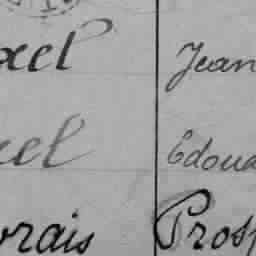 xel Jean
xel Edoua
vrais Prosp